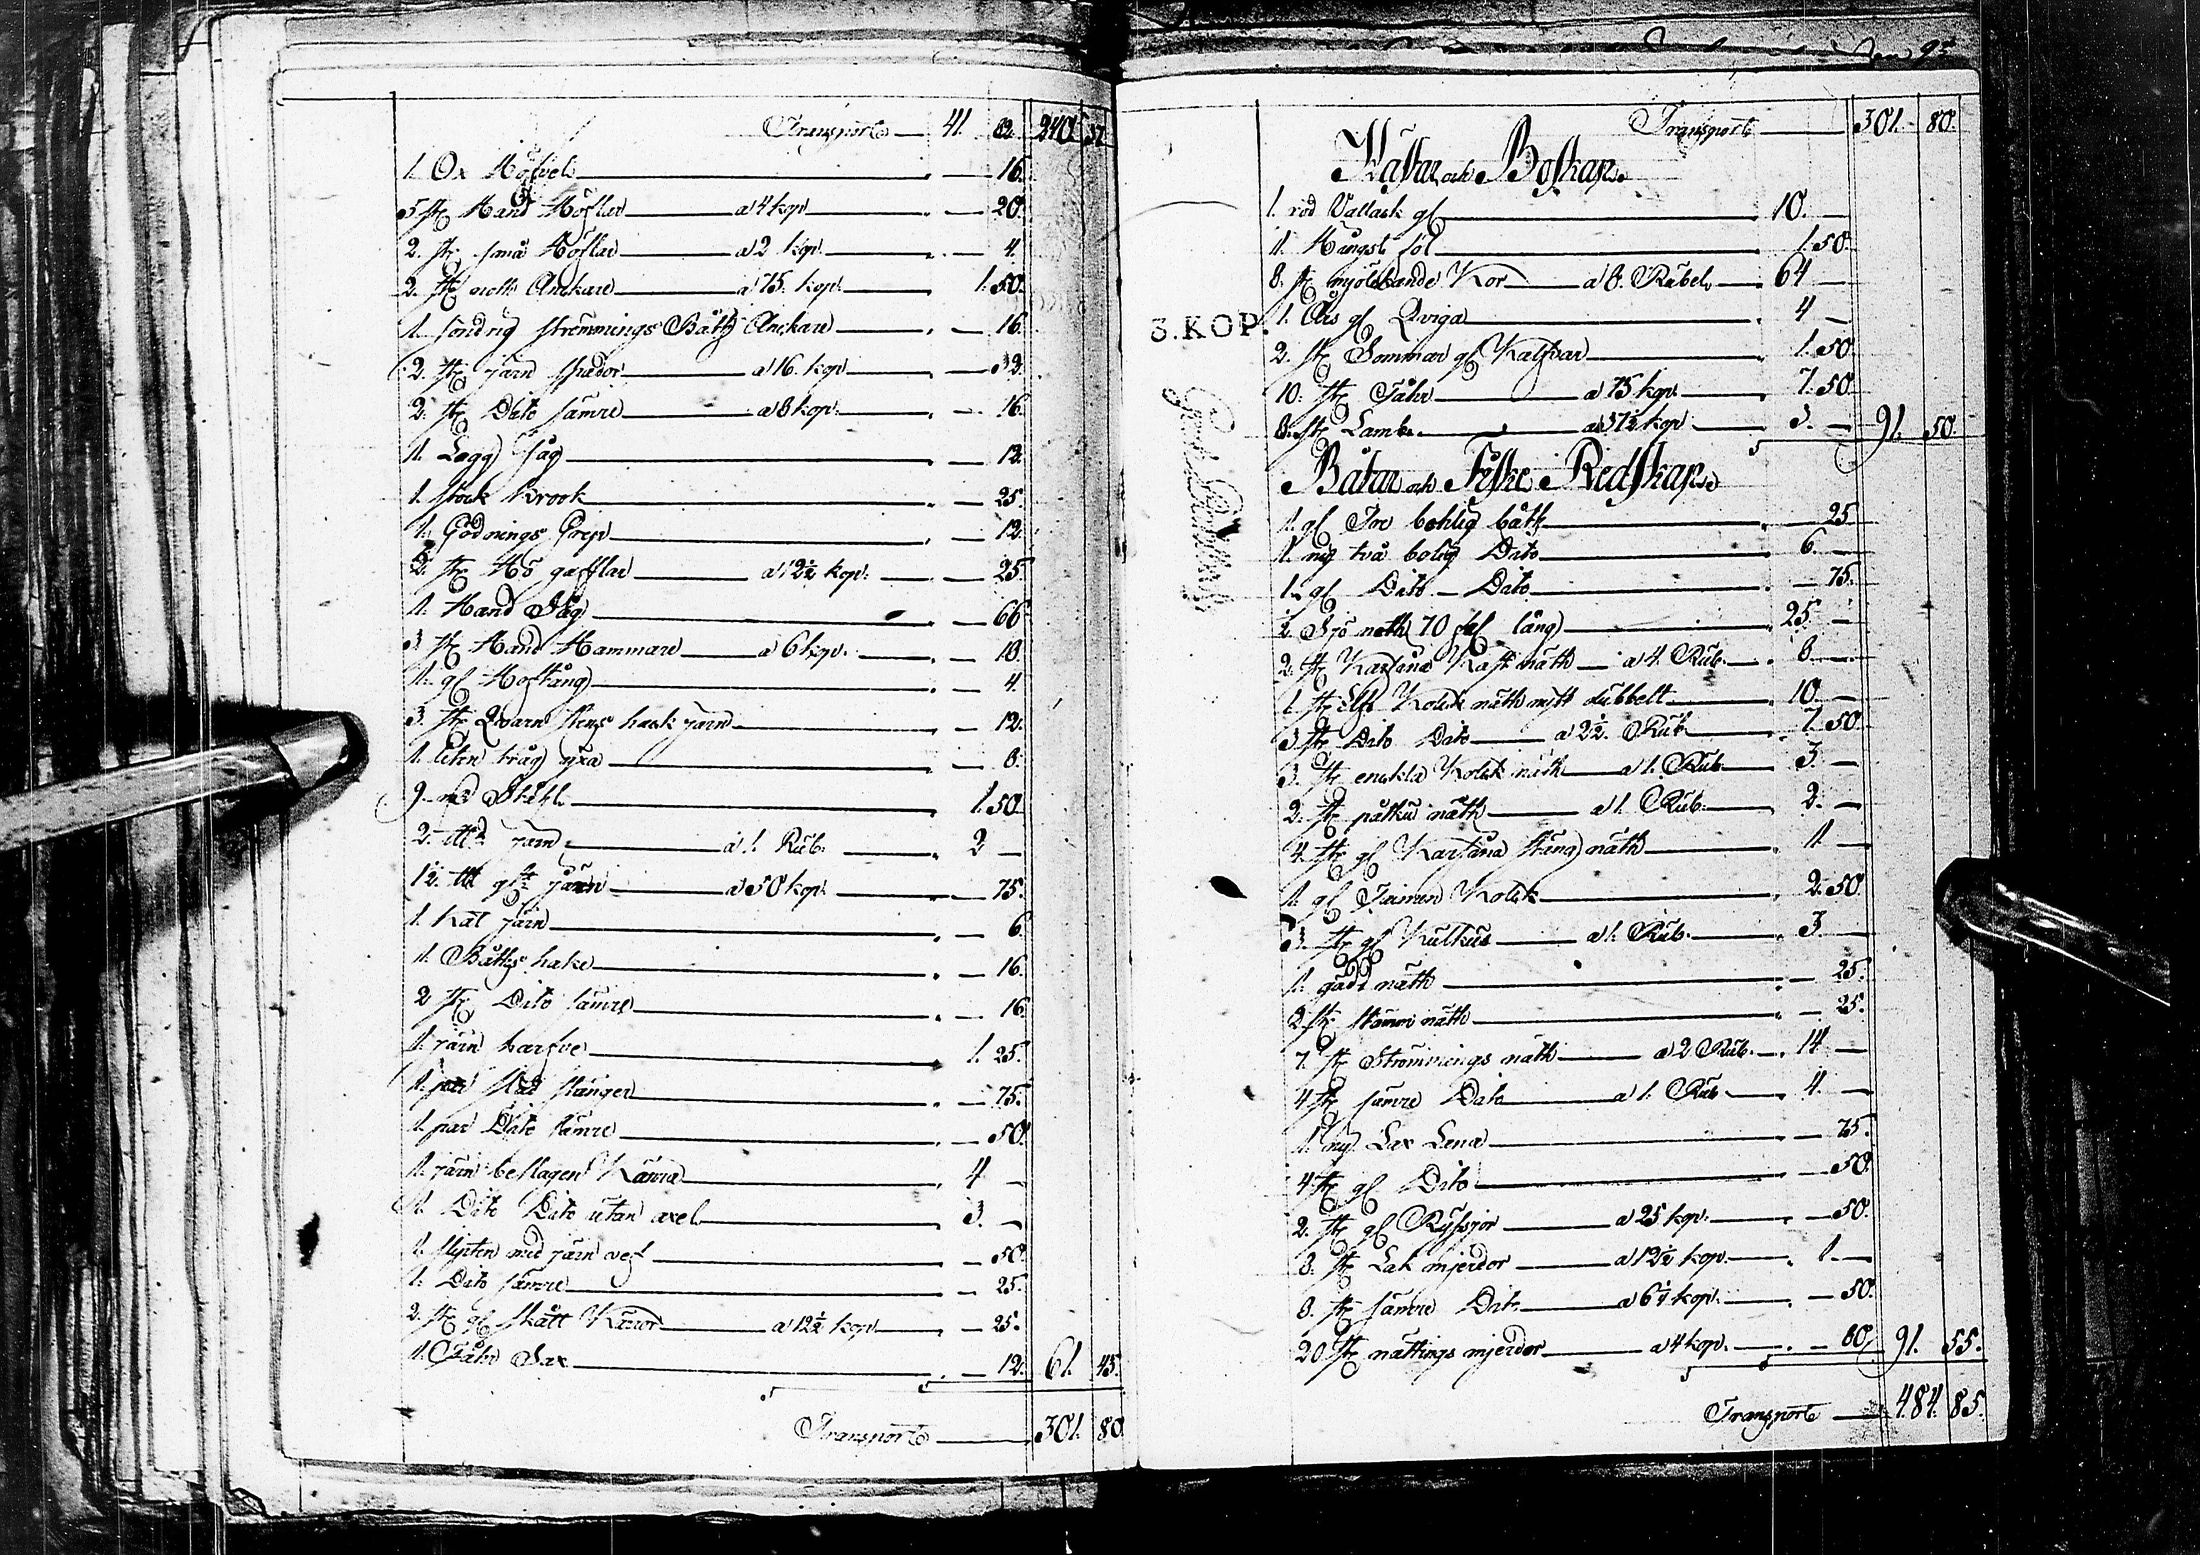 Transport — 41. 82. 240. 37
1. Ox Höfvel — 16.
5. st. Hand Höflar — a 4 kop — 20.
2. st. små Höflar — a 2 kop. — 4.
2. st. noth Anckare — a 75. kop. — 1. 50.
1. söndrig strömmings Båth Anckare — 16.
2. st. järn spador — a 16. kop — 32.
2. st. Dito sämre — a 8 kop. — 16.
1. Lagg såg — 12.
1. stock krook — 25.
1. Gödnings Grep — 12.
2. st. Hö gafflar — a 12½ kop. — 25.
1. Hand Såg — 66
3 st. Hand Hammare — a 6 kop. — 18.
1. gl. Hoftång — 4.
3. st. Qvarn stens hack järn — 12.
1. liten tråg yxa — 8.
9. Ståhl — 1. 50.
2. järn — a 1. Rub. — 2 —
1½. järn — a 50 kop. — 75.
1. Kat järn — 6.
1. Båths hake — 16.
2 st. Dito sämre — 16.
1. järn harfve — 1. 25.
1. par stänger — 75.
1. par Dito sämre — 50.
1. järn beslagen Kärra — 4 —
1. Dito Dito utan axel — 3. —
1. slipten med järn vef — 50.
1. Dito sämre — 25.
2. st. gl. skått Kärror — a 12½ kop — 25.
1. Fåhr Sax — 12. 61. 43.
Transport — 301. 80.
Transport — 301. 80.
Hästar och Boskap.
1. röd Vallack gl. — 10. —
1. Hängst föl — 1. 50.
8. st. mjölckande Kor — a 8. Rubel — 64 —
3. KOP.
1. Års gl. Qviga — 4 —
2. st. Sommar gl. Kalfvar — 1. 50.
10. st. Fåhr — a 75 kop. — 7. 50.
8. st. Lamb — a 37½ kop — 3. — 91. 50.
Båtar och Fiske Redskap.
1. gl. Tre bohlig båth — 25
1. ny två bolig Dato — 6. —
1. gl. Dito — Dato — 75.
1. Sjö noth 70 långl — 25. —
2. st. Karsina Kast näth — a 4. Rub. — 8 —
1. st. Elfs Kolck näth nytt dubbelt — 10. —
3 st. Dito Dato — a 2½. Rub — 7. 50.
3. st. enckla Kolck näth — a 1. Rub. — 3. —
2. st. påtku näth — a 1. Rub. — 2. —
4. st. gl. Karsina stäng näth — 1. —
1. gl. Kolck — 2. 50.
3. st. gl. Kulkus — a 1. Rub. — 3. —
1. gädd näth — 25.
2 st. näth — 25.
7. st. Strömmings näth — a 2 Rub. — 14 —
4 st. sämre Dato — a 1. Rub — 4. —
1. ny Lax Lena — 75.
4 st. gl. Dito — 50.
2. st. gl. Rÿssjor — a 25 kop. — 50.
8. st. Lak mjerdor — a 12½ kop. — 1. —
8. st. sämre Dito — a 6¼ kop. — 50.
20 st. nättings mjerdor — a 4 kop. — 80. 91. 55.
Transport — 484. 85.